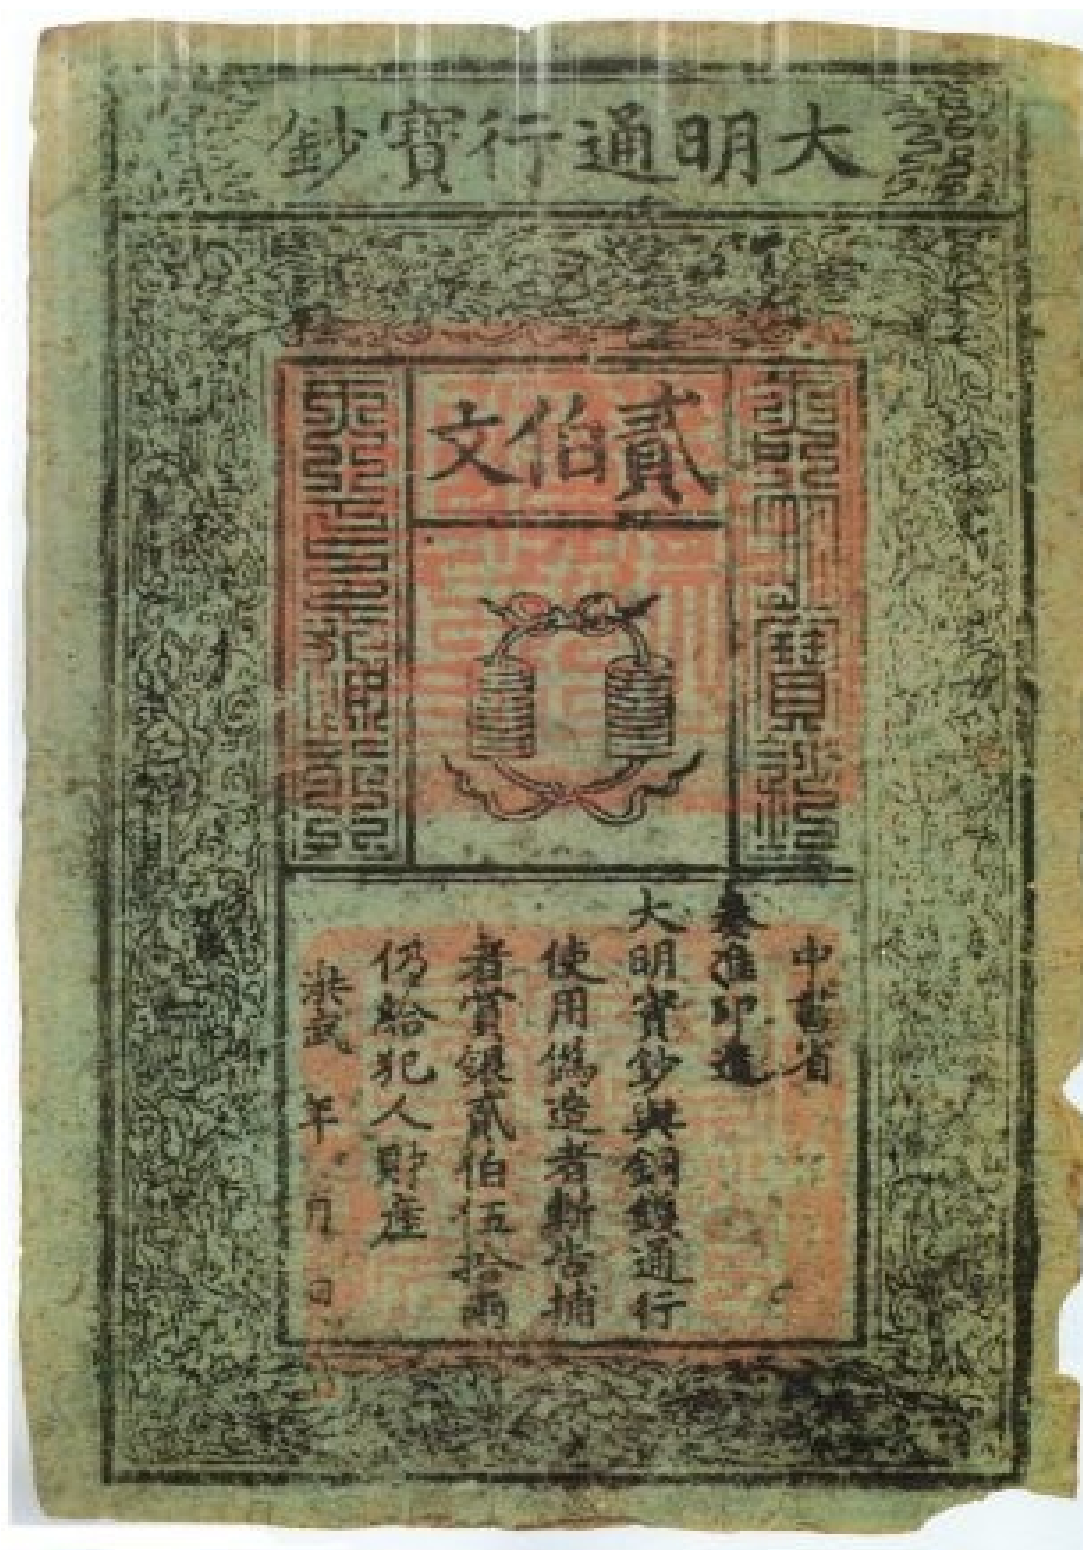 大明通行寶鈔
貳伯文
大明寶鈔
天下通行
中書省
奏准印造
大明寶鈔與銅錢通行
使用偽造者斬告捕
者賞銀貳伯伍拾兩
仍給犯人財産
洪武 年 月 日